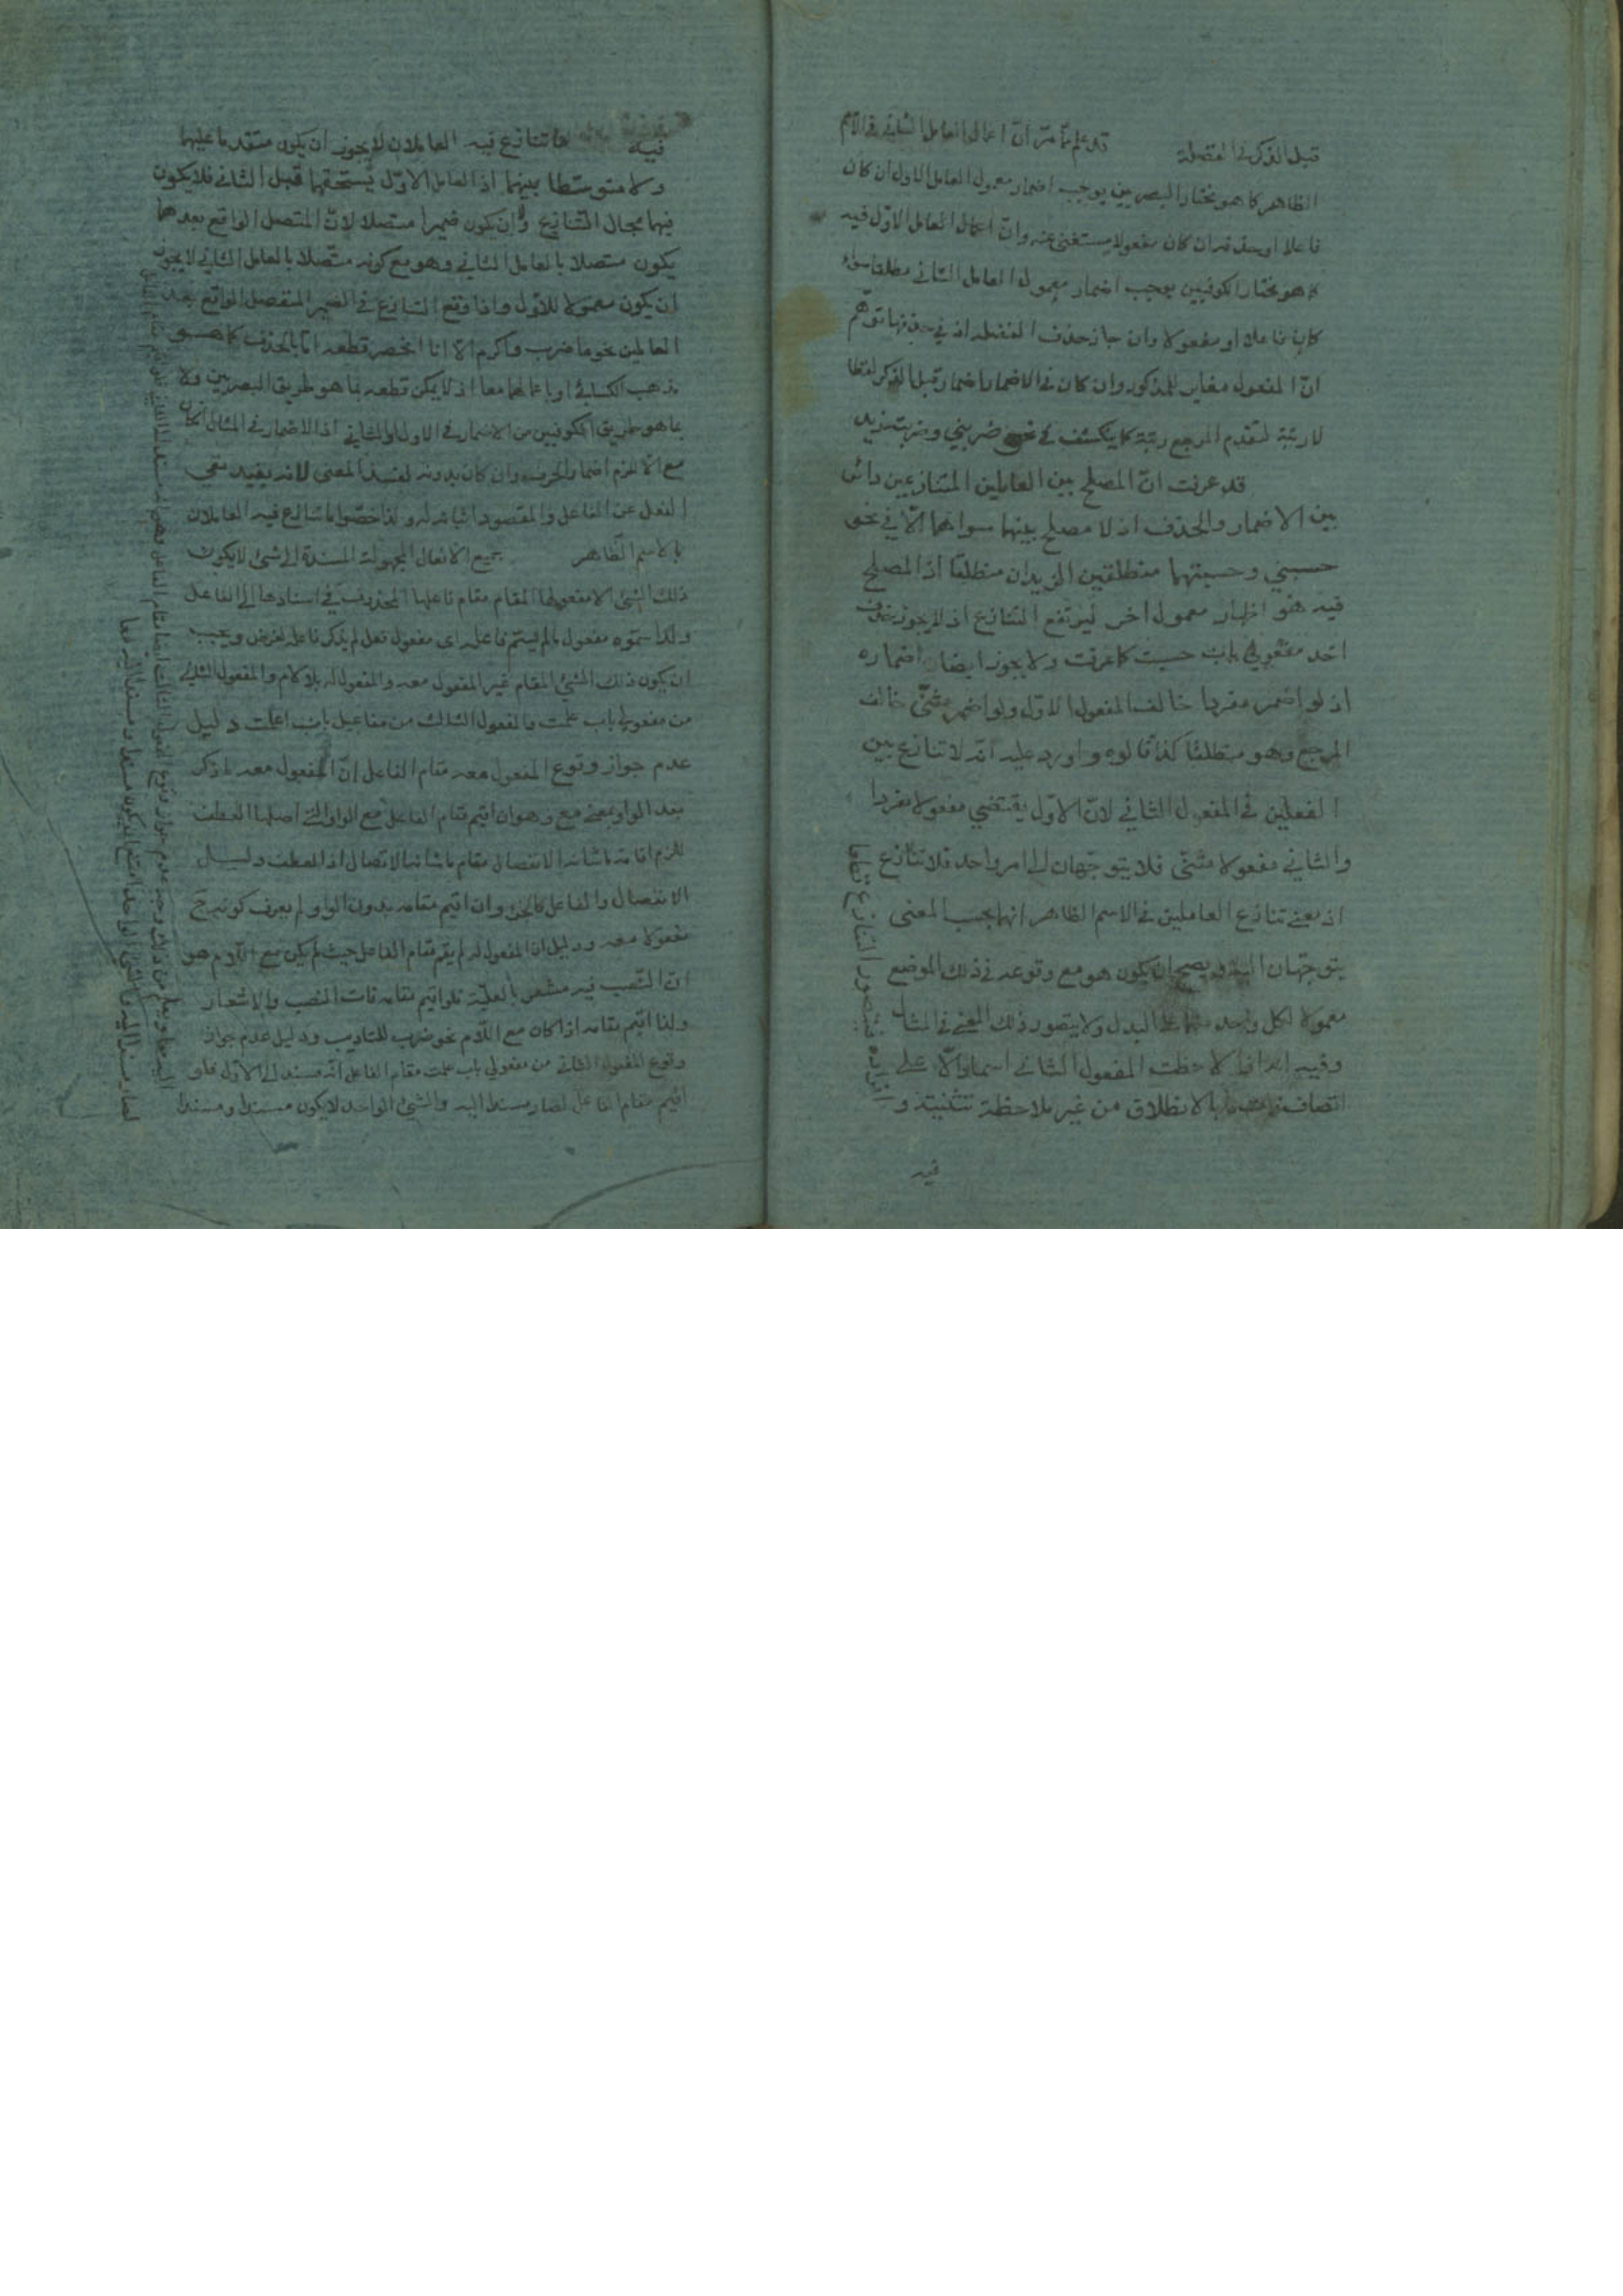 قبل الذكر في الفضلة قد علم مما مر ان اعمال العامل الثاني في الاسم
الظاهر كما هو مختار البصريين يوجب اضمار معمول العامل الاول ان كان
فاعلا او حذفه ان كان مفعولا يستغنى عنه وان اعمال العامل الاول فيه
كما هو مختار الكوفيين يوجب اضمار معمول العامل الثاني مطلقا سواء
كان فاعلا او مفعولا وان جاز حذف الفضلة اذ في حذفها توهم
ان المفعول مغاير للمذكور وان كان في الاضمار اضمار قبل الذكر لفظا
لا رتبة لتقدم المرجع رتبة كما ينكشف في نحو ضربني وضربته زيد
قد عرفت ان المصلح بين العاملين المتنازعين دائر
بين الاضمار والحذف اذ لا مصلح بينهما سواهما الا في نحو
حسبني وحسبتهما منطلقين الزيدان منطلقا اذ المصلح
فيه هو اظهار معمول اخر ليرتفع التنازع اذ لا يجوز حذف
احد مفعولي باب حسبت كما عرفت ولا يجوز ايضا اضماره
اذ لو اضمر مفردا خالف المفعول الاول ولو اضمر مثنى خالف
المرجع وهو منطلقا كذا قالوه واورد عليه انه لا تنازع بين
الفعلين في المفعول الثاني لان الاول يقتضي مفعولا مفردا
والثاني مفعولا مثنى فلا يتوجهان الى امر واحد فلا تنازع
اذ معنى تنازع العاملين في الاسم الظاهر انهما بحسب المعنى
يتوجهان اليه ويصح ان يكون هو مع وقوعه في ذلك الموضع
معمولا لكل واحد منهما على البدل ولا يتصور ذلك المعنى في المثال
وفيه انه اذا لاحظت المفعول الثاني اسما دالا على
اتصاف ذات ما بالانطلاق من غير ملاحظة تثنيته و
افراده فيتصور التنازع قطعا
فيه
فيه ما تنازع فيه العاملان لا يجوز ان يكون متقدما عليهما
ولا متوسطا بينهما اذ العامل الاول يستحقهما قبل الثاني فلا يكون
فيهما مجال التنازع ولا ان يكون ضميرا متصلا لان المتصل الواقع بعدهما
يكون متصلا بالعامل الثاني وهو مع كونه متصلا بالعامل الثاني لا يجوز
ان يكون معمولا للاول واذا وقع التنازع في الضمير المنفصل الواقع بعد
العاملين نحو ما ضرب واكرم الا انا انحصر قطعه اما بالحذف كما هو
مذهب الكسائي او باعمالهما معا اذ لا يمكن قطعه بما هو طريق البصريين ولا
بما هو طريق الكوفيين من الاضمار في الاول او الثاني اذ الاضمار في المثال ان كان
مع الا لزم اضمار الحرف وان كان بدونه لفسد المعنى لانه يفيد نفي
الفعل عن الفاعل والمقصود اثباته له ولذا خصوا ما تنازع فيه العاملان
بالاسم الظاهر جميع الافعال المجهولة المسندة الى شئ لا يكون
ذلك الشئ الا مفعولها المقام مقام فاعلها المحذوف في اسنادها الى الفاعل
ولذا سموه مفعول ما لم يسم فاعله اى مفعول فعل لم يذكر فاعله لغرض ويجب
ان يكون ذلك الشئ المقام غير المفعول معه والمفعول له بلا لام والمفعول الثاني
من مفعولي باب علمت والمفعول الثالث من مفاعيل باب اعلمت دليل
عدم جواز وقوع المفعول معه مقام الفاعل ان المفعول معه لم يذكر
بعد الواو بمعنى مع وهو ان اقيم مقام الفاعل مع الواو التي اصلها العطف
لزم اقامة ما شانه الانفصال مقام ما شانه الاتصال اذ العطف دليل
الانفصال والفاعل كالجزء وان اقيم مقامه بدون الواو لم يعرف كونه ح
مفعولا معه ودليل ان المفعول له لم يقم مقام الفاعل حيث لم يكن مع اللام هو
ان النصب فيه مشعر بالعلية فلو اقيم مقامه فات النصب والاشعار
ولذا اقيم مقامه اذا كان مع اللام نحو ضرب للتاديب ودليل عدم جواز
وقوع المفعول الثاني من مفعولي باب علمت مقام الفاعل انه مسند الى الاول فلو
اقيم مقام الفاعل لصار مسندا اليه والشئ الواحد لا يكون مسندا ومسندا
اليه معا ويعلم من ذلك وجه عدم جواز وقوع المفعول الثالث ايضا مقام الفاعل
لصار مسندا اليه